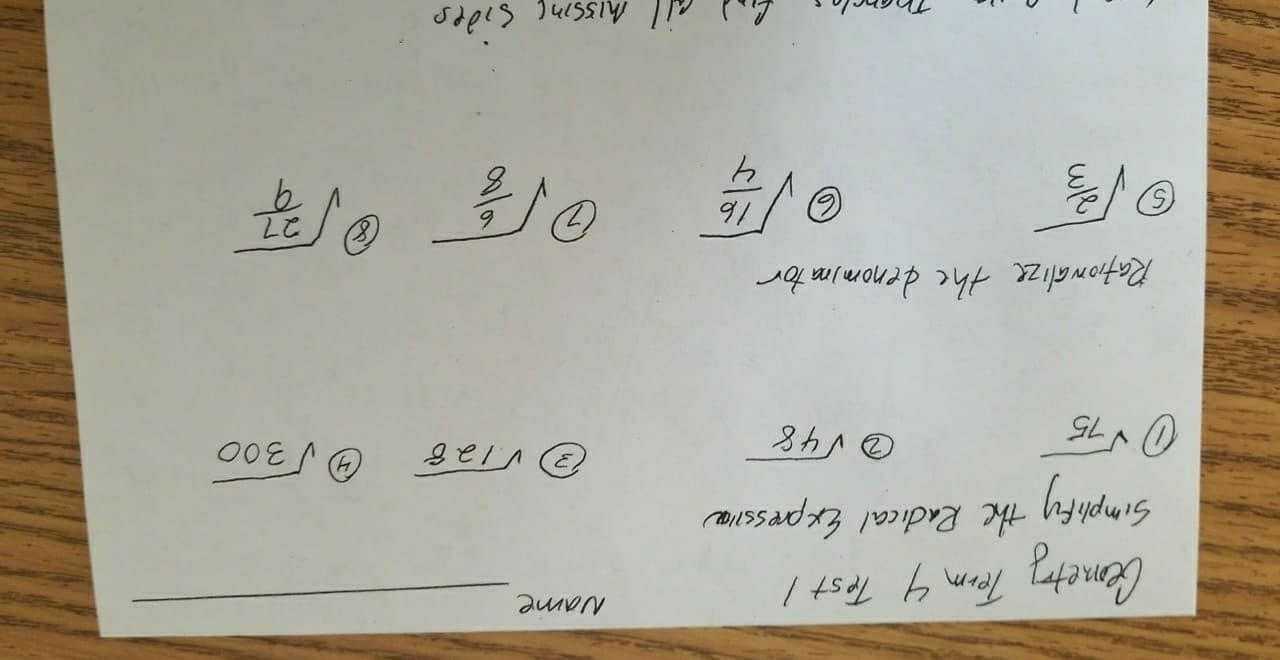 Geometry Term 4 Test 1 Name
Simplify the Radical Expression
① √75 ② √48 ③ √128 ④ √300
Rationalize the denominator
⑤ √2/3 ⑥ √16/4 ⑦ √6/8 ⑧ √27/9
find all missing sides